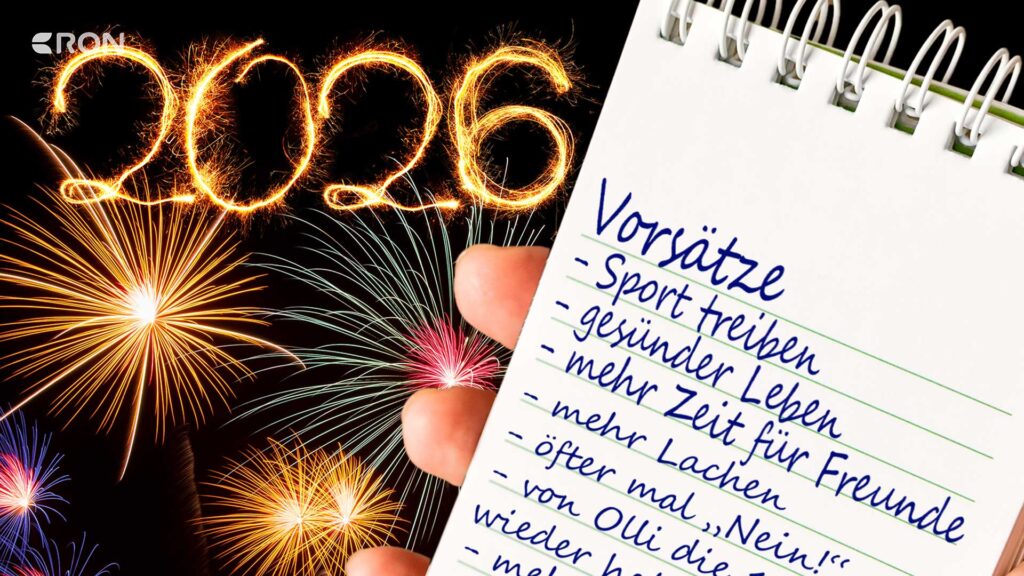 RON
2026
Vorsätze
- Sport treiben
- gesünder Leben
- mehr Zeit für Freunde
- mehr Lachen
- öfter mal „Nein!“
- von Olli die
wieder
-